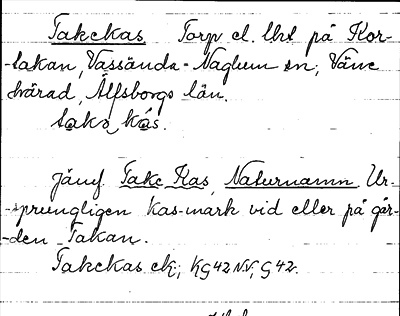 Takekas Torp el. lht på Kor-
takan, Vassända-Naglum sn, Väne
härad, Älfsborgs län.
takə kás.
Jämf Take Kas, Naturnamn. Ur-
sprungligen kas-mark vid eller på går-
den Takan.
Takekas ek; KG42NV, G42.